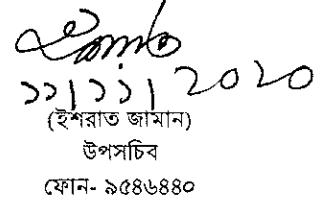 ১১|১১|২০২০
(ইশরাত জামান)
উপসচিব
ফোন- ৯৫৪৬৪৪০